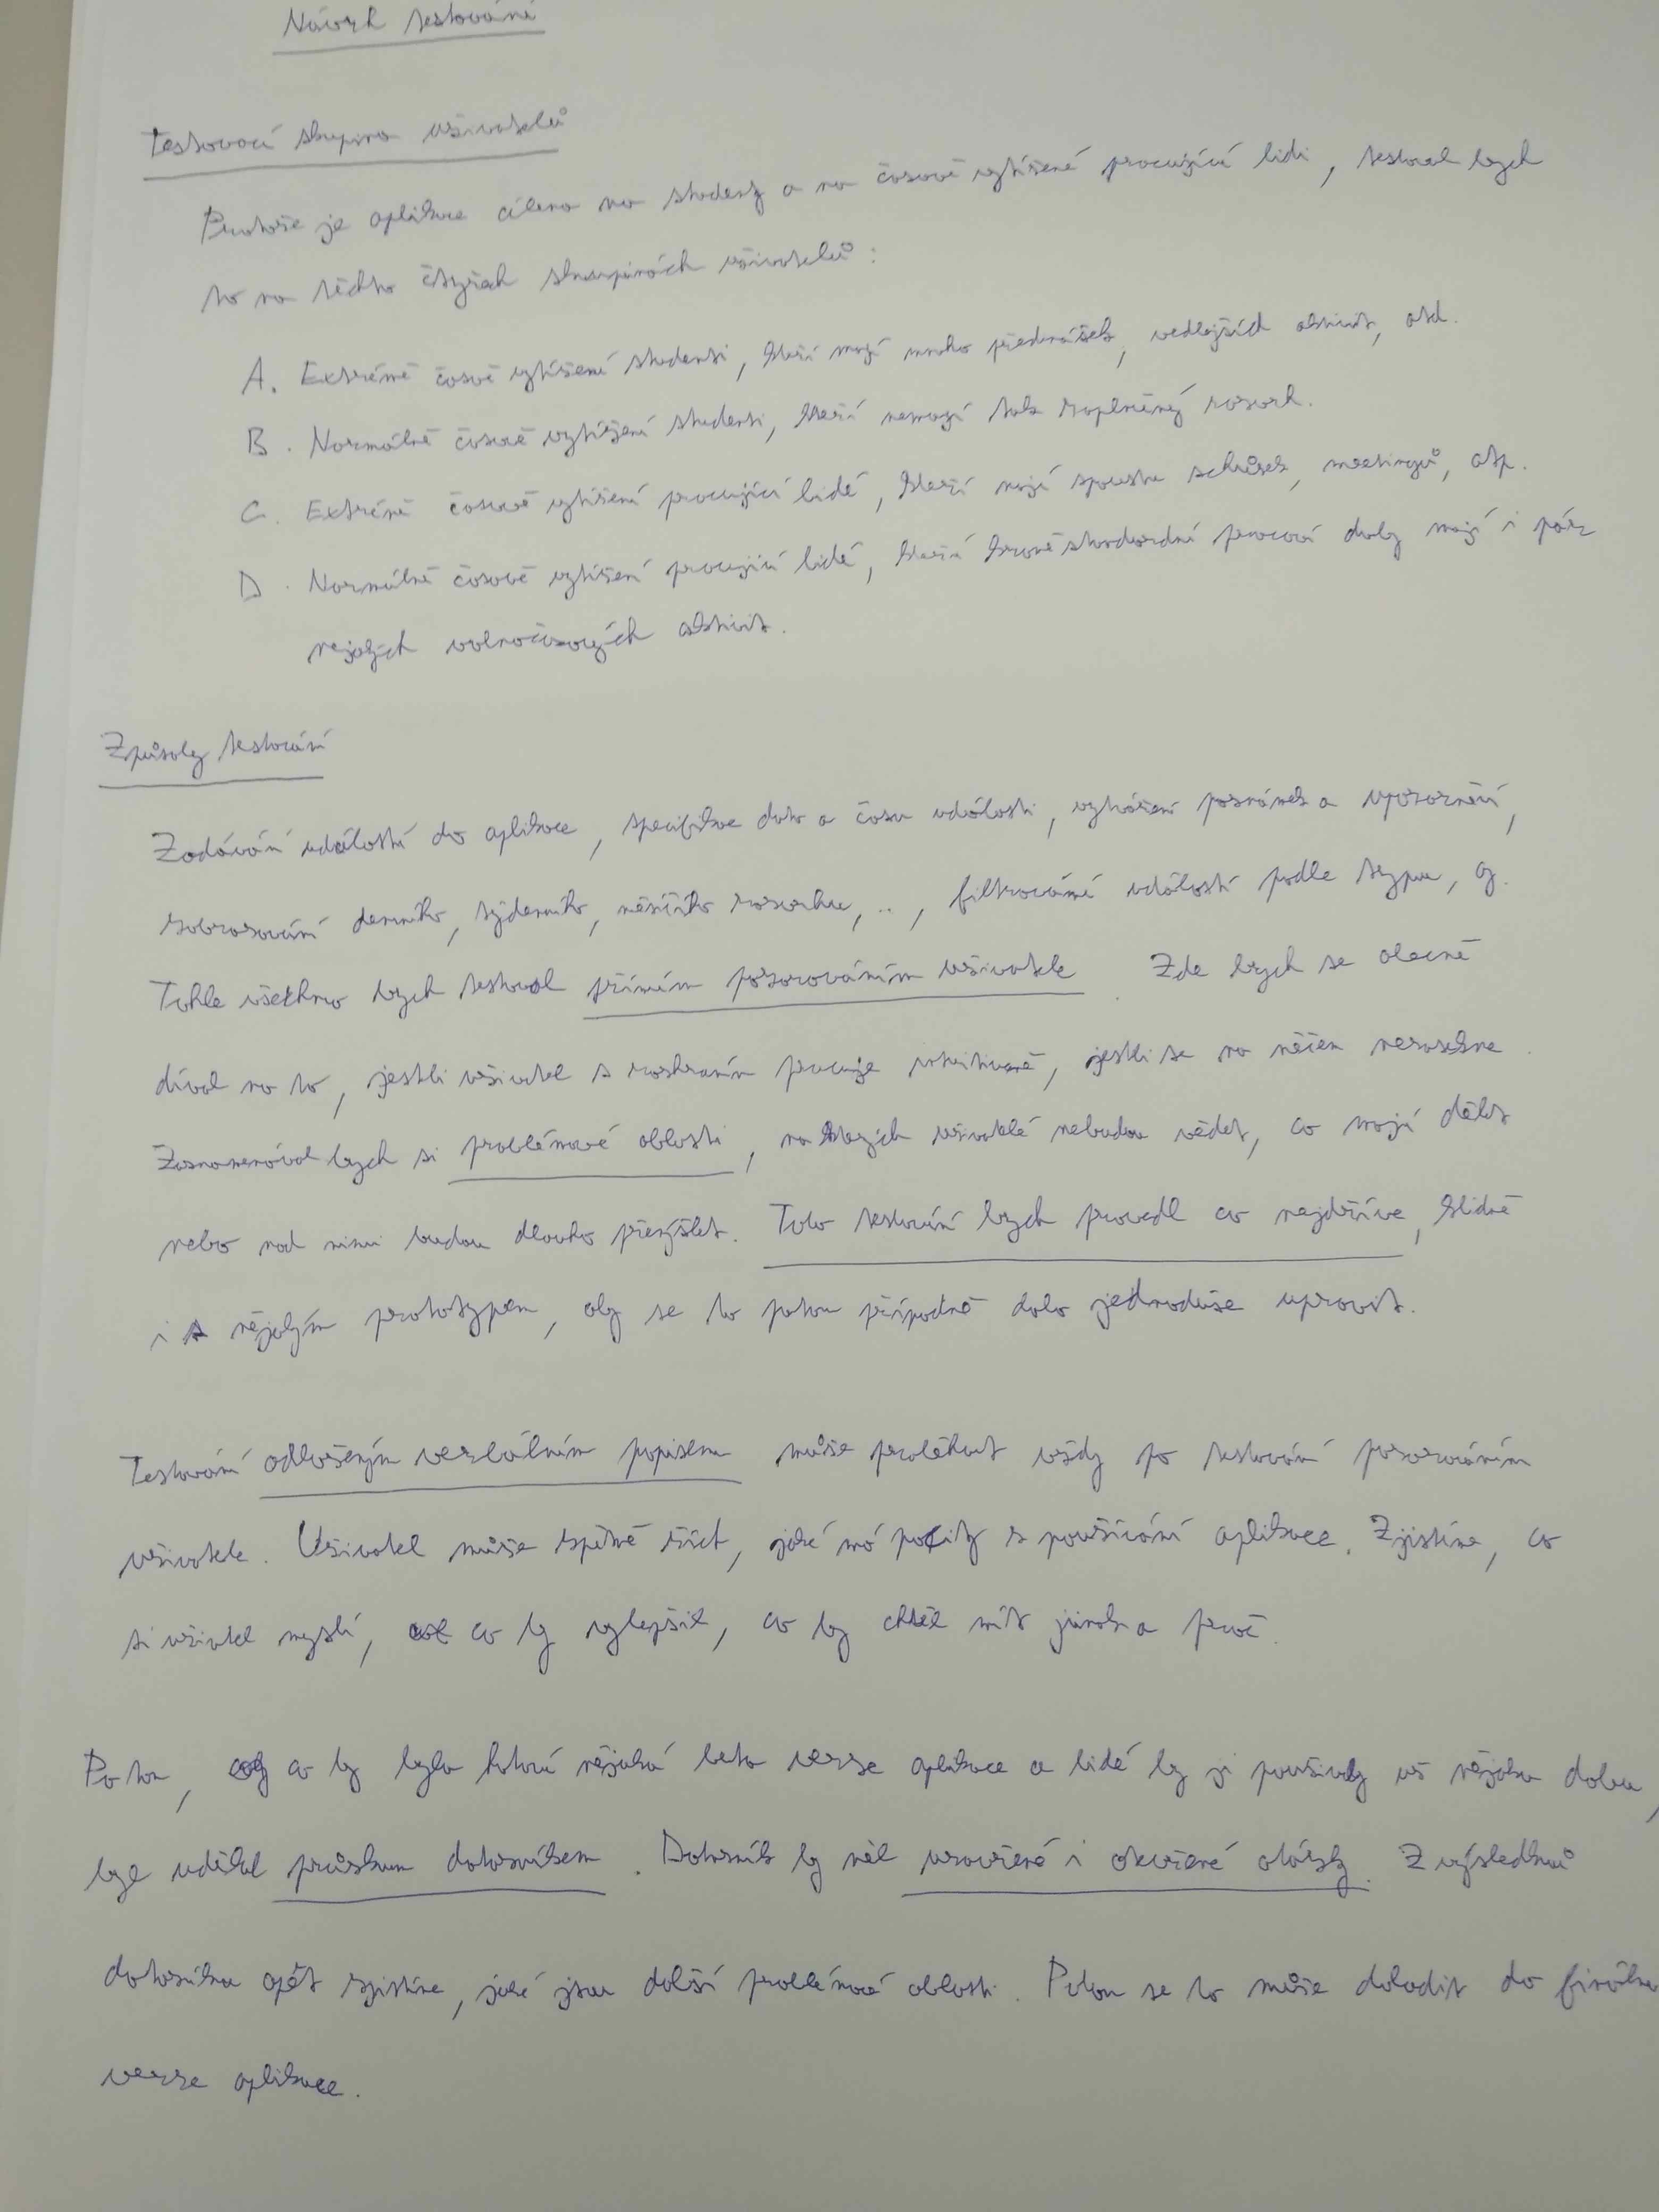 Návrh testování
Testovací skupina uživatelů
Protože je aplikace cílena na studenty a na časově vytížené pracující lidi, testoval bych
to na těchto čtyřech skupinách uživatelů:
A. Extrémě časově vytížení studenti, kteří mají mnoho přednášek, vedlejších aktivit, atd.
B. Normálně časově vytížení studenti, kteří nemají tak zaplněný rozvrh.
C. Extrémě časově vytížení pracující lidé, kteří mají spoustu schůzek, meetingů, atp.
D. Normálně časově vytížení pracující lidé, kteří kromě standardní pracovní doby mají i pár
nějakých volnočasových aktivit.
Způsoby testování
Zadávání událostí do aplikace, specifikace data a času události, vytváření poznámek a upozornění,
zobrazování denního, týdenního, měsíčního rozvrhu, .., filtrování událostí podle typu, aj.
Tohle všechno bych testoval přímím pozorováním uživatele. Zde bych se obecně
díval na to, jestli uživatel s rozhraním pracuje intuitivně, jestli se na něčem nezasekne.
Zaznamenával bych si problémové oblasti, na kterých uživatelé nebudou vědět, co mají dělat
nebo nad nimi budou dlouho přemýšlet. Toto testování bych provedl co nejdříve, klidně
i s nějakým prototypem, aby se to potom případně dalo jednoduše upravit.
Testování odloženým verbálním popisem může proběhnout vždy po testování pozorováním
uživatele. Uživatel může zpětně říct, jaké má pocity z používání aplikace. Zjistíme, co
si uživatel myslí, co by vylepšil, co by chtěl mít jinak a proč.
Potom, co by byla hotová nějaká beta verze aplikace a lidé by ji používaly už nějakou dobu,
bych udělal průzkum dotazníkem. Dotazník by měl uzavřené i otevřené otázky. Z výsledků
dotazníku opět zjistíme, jaké jsou další problémové oblasti. Potom se to může doladit do finální
verze aplikace.